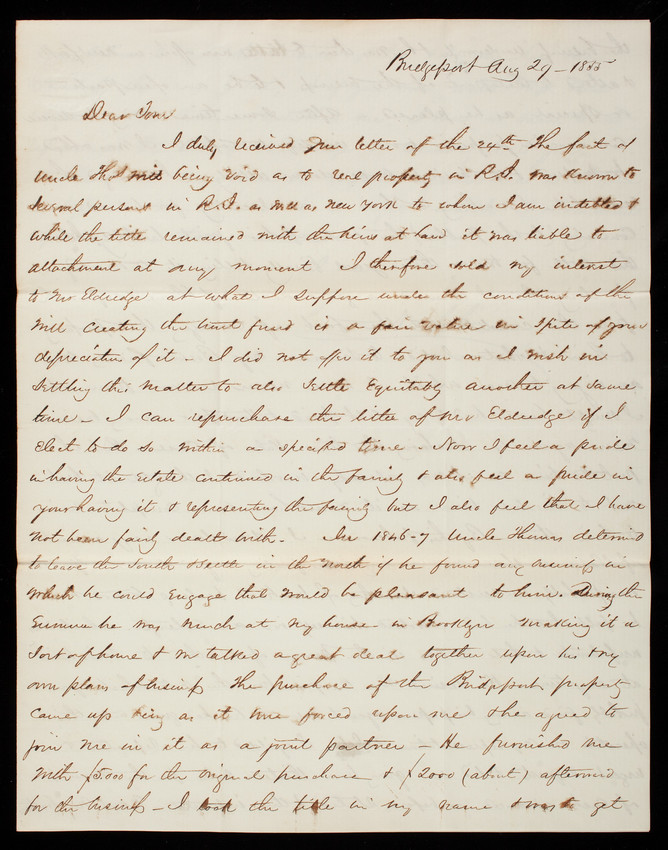 Bridgeport Aug 29 - 1855
Dear Tom
I duly received your letter of the 24th The fact of
uncle Th's will being void as to real property in R.I. was known to
several persons in R.I. as well as New York to whom I am indebted &
while the title remained with the heirs at law it was liable to
attachment at any moment I therefore sold my interest
to Mr Eldredge at what I suppose under the conditions of the
Will creating the trust fund is a fair value in spite of your
depreciation of it - I did not offer it to you as I wish in
settling this matter to also settle Equitably another at same
time - I can repurchase the title of Mr Eldredge if I
Elect to do so within a specified time. Now I feel a pride
in having the Estate continued in the family & also feel a pride in
your having it & representing the family but I also feel that I have
not been fairly dealt with - In 1846-7 Uncle Thomas determined
to leave the South & settle in the north if he found any business in
which he could Engage that would be pleasant to him. During the
Summer he was much at my house in Brooklyn making it a
sort of home & we talked a great deal together upon his & my
own plans of business The purchase of the Bridgeport property
came up being as it were forced upon me & he agreed to
join me in it as a joint partner - He furnished me
with $5.000 for the original purchase & $2000 (about) afterward
for the business - I took the title in my name & was to get